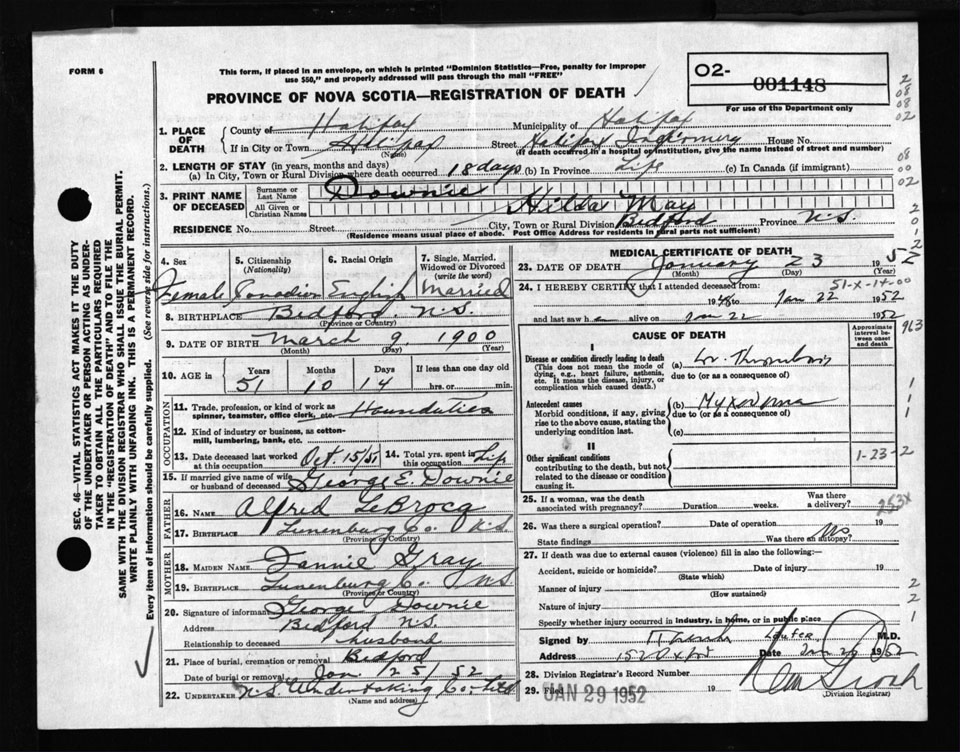 FORM 6
This form, if placed in an envelope, on which is printed "Dominion Statistics—Free, penalty for improper
use $50," and properly addressed will pass through the mail "FREE"
PROVINCE OF NOVA SCOTIA—REGISTRATION OF DEATH
02-
001148
For use of the Department only
1. PLACE OF DEATH
County of Halifax Municipality of Halifax
If in City or Town Halifax Street Halifax Infirmary House No.
(Name) (If death occurred in a hospital or institution, give the name instead of street and number)
2. LENGTH OF STAY (in years, months and days)
(a) In City, Town or Rural Division where death occurred 18 days (b) In Province Life (c) In Canada (if immigrant)
3. PRINT NAME OF DECEASED
Surname or Last Name Downie
All Given or Christian Names Hilda May
RESIDENCE No. Street City, Town or Rural Division Bedford Province N.S.
(Residence means usual place of abode. Post Office Address for residents in rural parts not sufficient)
4. Sex Female
5. Citizenship (Nationality) Canadian
6. Racial Origin English
7. Single, Married, Widowed or Divorced (write the word) Married
8. BIRTHPLACE Bedford. N.S.
(Province or Country)
9. DATE OF BIRTH March 9, 1900
(Month) (Day) (Year)
10. AGE in Years 51 Months 10 Days 14 If less than one day
hrs. or min.
OCCUPATION
11. Trade, profession, or kind of work as
spinner, teamster, office clerk, etc. Houseduties
12. Kind of industry or business, as cotton-
mill, lumbering, bank, etc.
13. Date deceased last worked
at this occupation Oct 15/51
14. Total yrs. spent in
this occupation Life
15. If married give name of wife
or husband of deceased George E. Downie
FATHER
16. NAME Alfred LeBrocq
17. BIRTHPLACE Lunenburg Co. N.S.
(Province or Country)
MOTHER
18. MAIDEN NAME Fannie Gray
19. BIRTHPLACE Lunenburg Co. N.S.
(Province or Country)
20. Signature of informant George Downie
Address Bedford N.S.
Relationship to deceased husband
21. Place of burial, cremation or removal Bedford
Date of burial or removal Jan. 25/52
22. UNDERTAKER N.S. Undertaking Co. Ltd
(Name and address)
MEDICAL CERTIFICATE OF DEATH
23. DATE OF DEATH January 23 1952
(Month) (Day) (Year)
24. I HEREBY CERTIFY that I attended deceased from:
51-X-14-00
19 to Jan 22 1952
and last saw h alive on Jan 22 1952
CAUSE OF DEATH
Approximate interval between onset and death
I
Disease or condition directly leading to death
(This does not mean the mode of dying, e.g., heart failure, asthenia, etc. It means the disease, injury, or complication which caused death.)
(a) Thrombosis
due to (or as a consequence of)
Antecedent causes
Morbid conditions, if any, giving rise to the above cause, stating the underlying condition last.
(b) Myxedema
due to (or as a consequence of)
(c)
II
Other significant conditions
contributing to the death, but not related to the disease or condition causing it.
1-23-2
25. If a woman, was the death associated with pregnancy? Duration weeks. Was there a delivery?
253X
26. Was there a surgical operation? Date of operation 19
State findings Was there an autopsy? No
27. If death was due to external causes (violence) fill in also the following:—
Accident, suicide or homicide? Date of injury 19
(State which)
Manner of injury
(How sustained)
Nature of injury
Specify whether injury occurred in industry, in home, or in public place
Signed by M.D.
Address Date Jan 1952
28. Division Registrar's Record Number
29. Filed JAN 29 1952 19
(Division Registrar)
SEC. 46—VITAL STATISTICS ACT MAKES IT THE DUTY
OF THE UNDERTAKER OR PERSON ACTING AS UNDER-
TAKER TO OBTAIN ALL THE PARTICULARS REQUIRED
IN THE "REGISTRATION OF DEATH" AND TO FILE THE
SAME WITH THE DIVISION REGISTRAR WHO SHALL ISSUE THE BURIAL PERMIT.
WRITE PLAINLY WITH UNFADING INK. THIS IS A PERMANENT RECORD.
Every item of information should be carefully supplied. (See reverse side for instructions.)